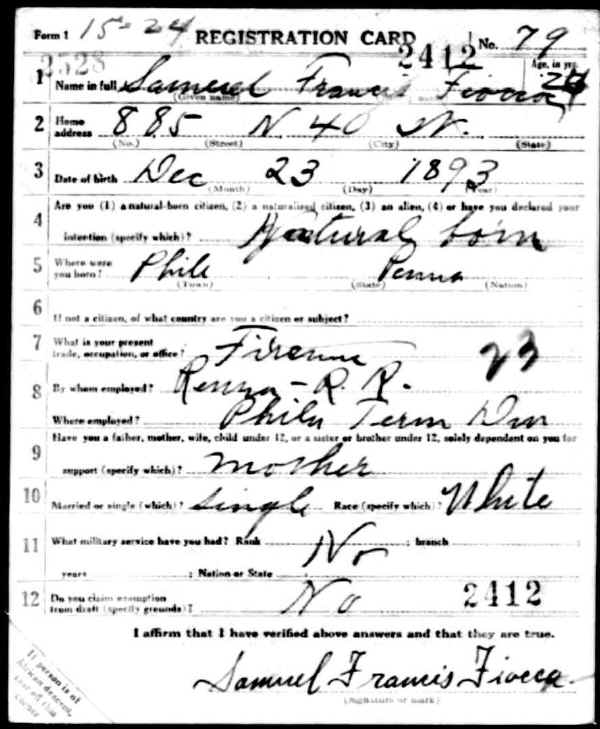 Form 1 15-24 REGISTRATION CARD No. 79
2528 2412
Age, in yrs.
1 Name in full Samuel Francis Fiocca 24
(Given name)
2 Home address 885 N 40 St.
(No.) (Street) (City) (State)
3 Date of birth Dec 23 1893
(Month) (Day) (Year)
4 Are you (1) a natural-born citizen, (2) a naturalized citizen, (3) an alien, (4) or have you declared your
intention (specify which)? Natural born
5 Where were you born? Phila Penna
(Town) (State) (Nation)
6 If not a citizen, of what country are you a citizen or subject?
7 What is your present trade, occupation, or office? Fireman 23
8 By whom employed? Penna-R. R.
Where employed? Phila Term Div
9 Have you a father, mother, wife, child under 12, or a sister or brother under 12, solely dependent on you for
support (specify which)? mother
10 Married or single (which)? single Race (specify which)? White
11 What military service have you had? Rank No ; branch
years ; Nation or State
12 Do you claim exemption from draft (specify grounds)? No 2412
I affirm that I have verified above answers and that they are true.
Samuel Francis Fiocca.
(Signature or mark)
If person is of
African descent,
tear off this
corner